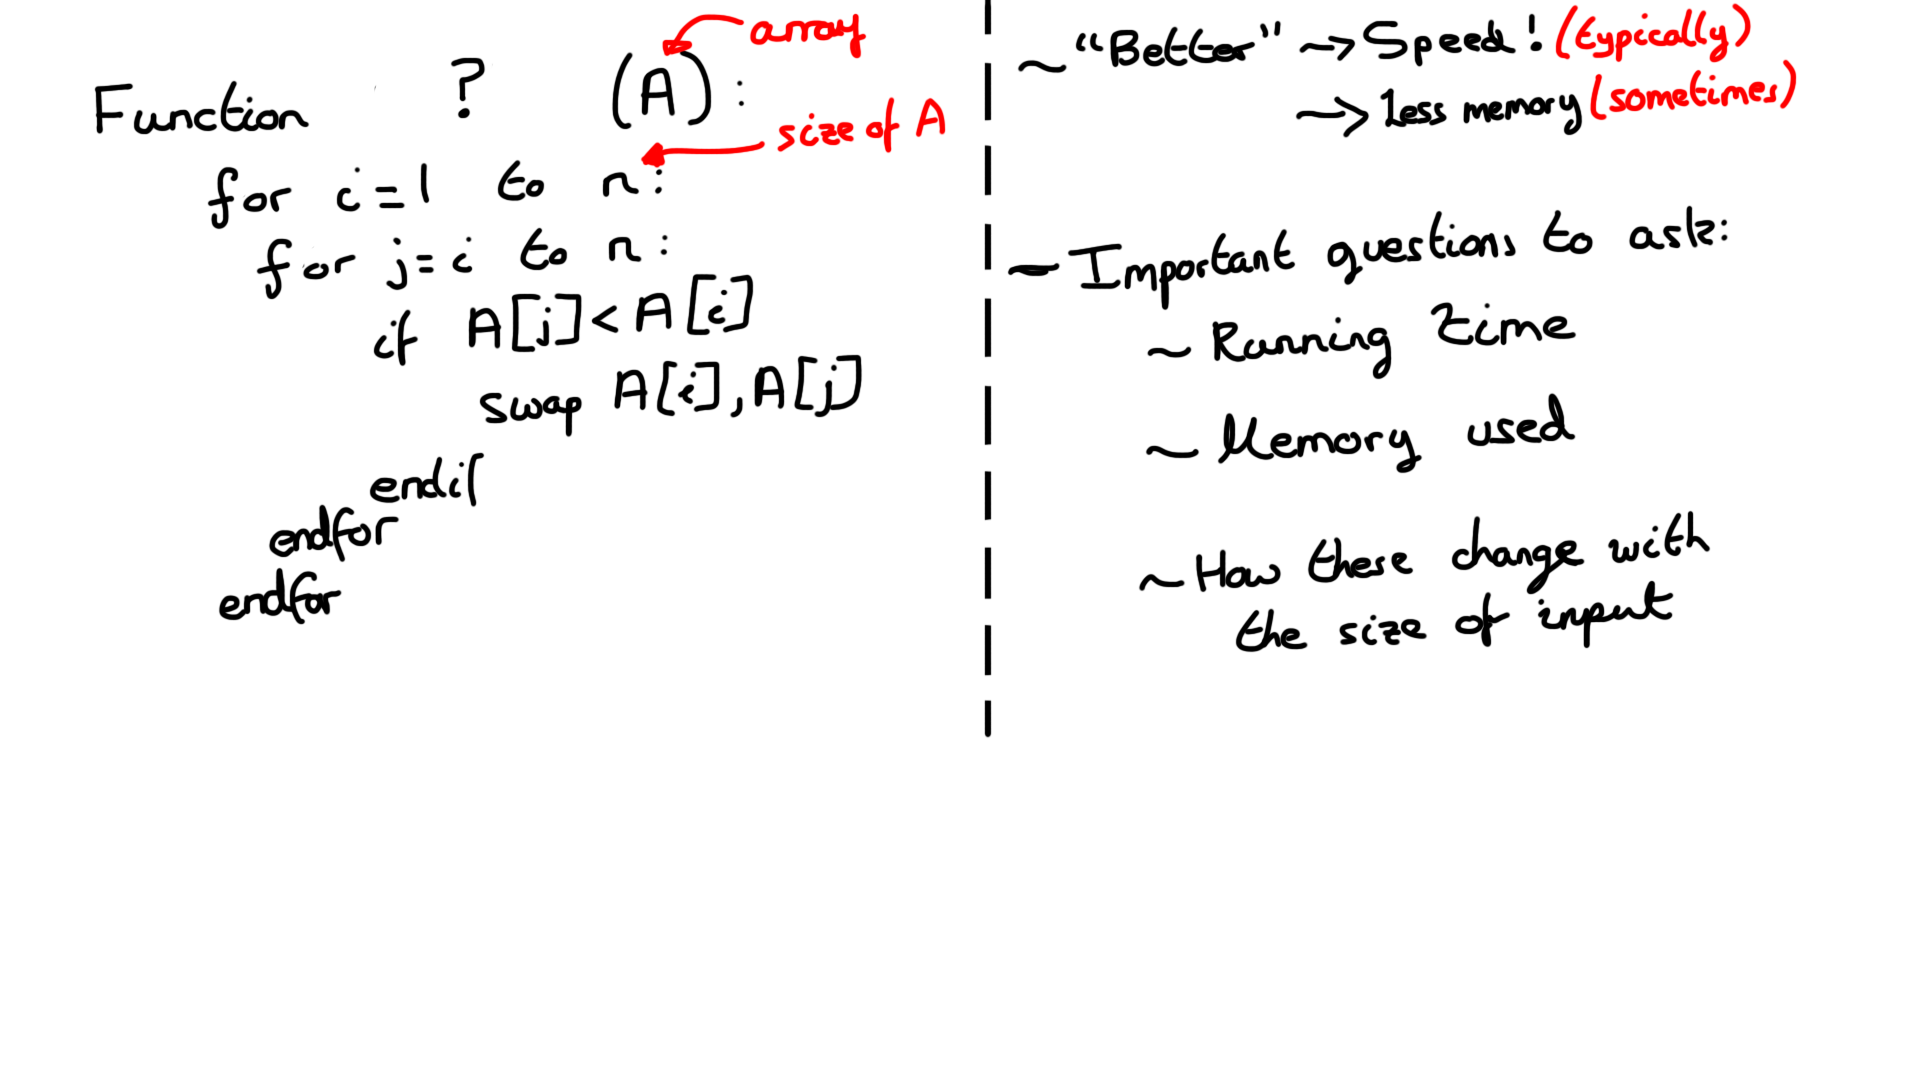 array
Function ? (A):
size of A
for i=1 to n:
for j=i to n:
if A[j]<A[i]
swap A[i],A[j]
endif
endfor
endfor
~ "Better" → Speed! (typically)
→ Less memory (sometimes)
- Important questions to ask:
~ Running time
~ Memory used
~ How these change with
the size of input